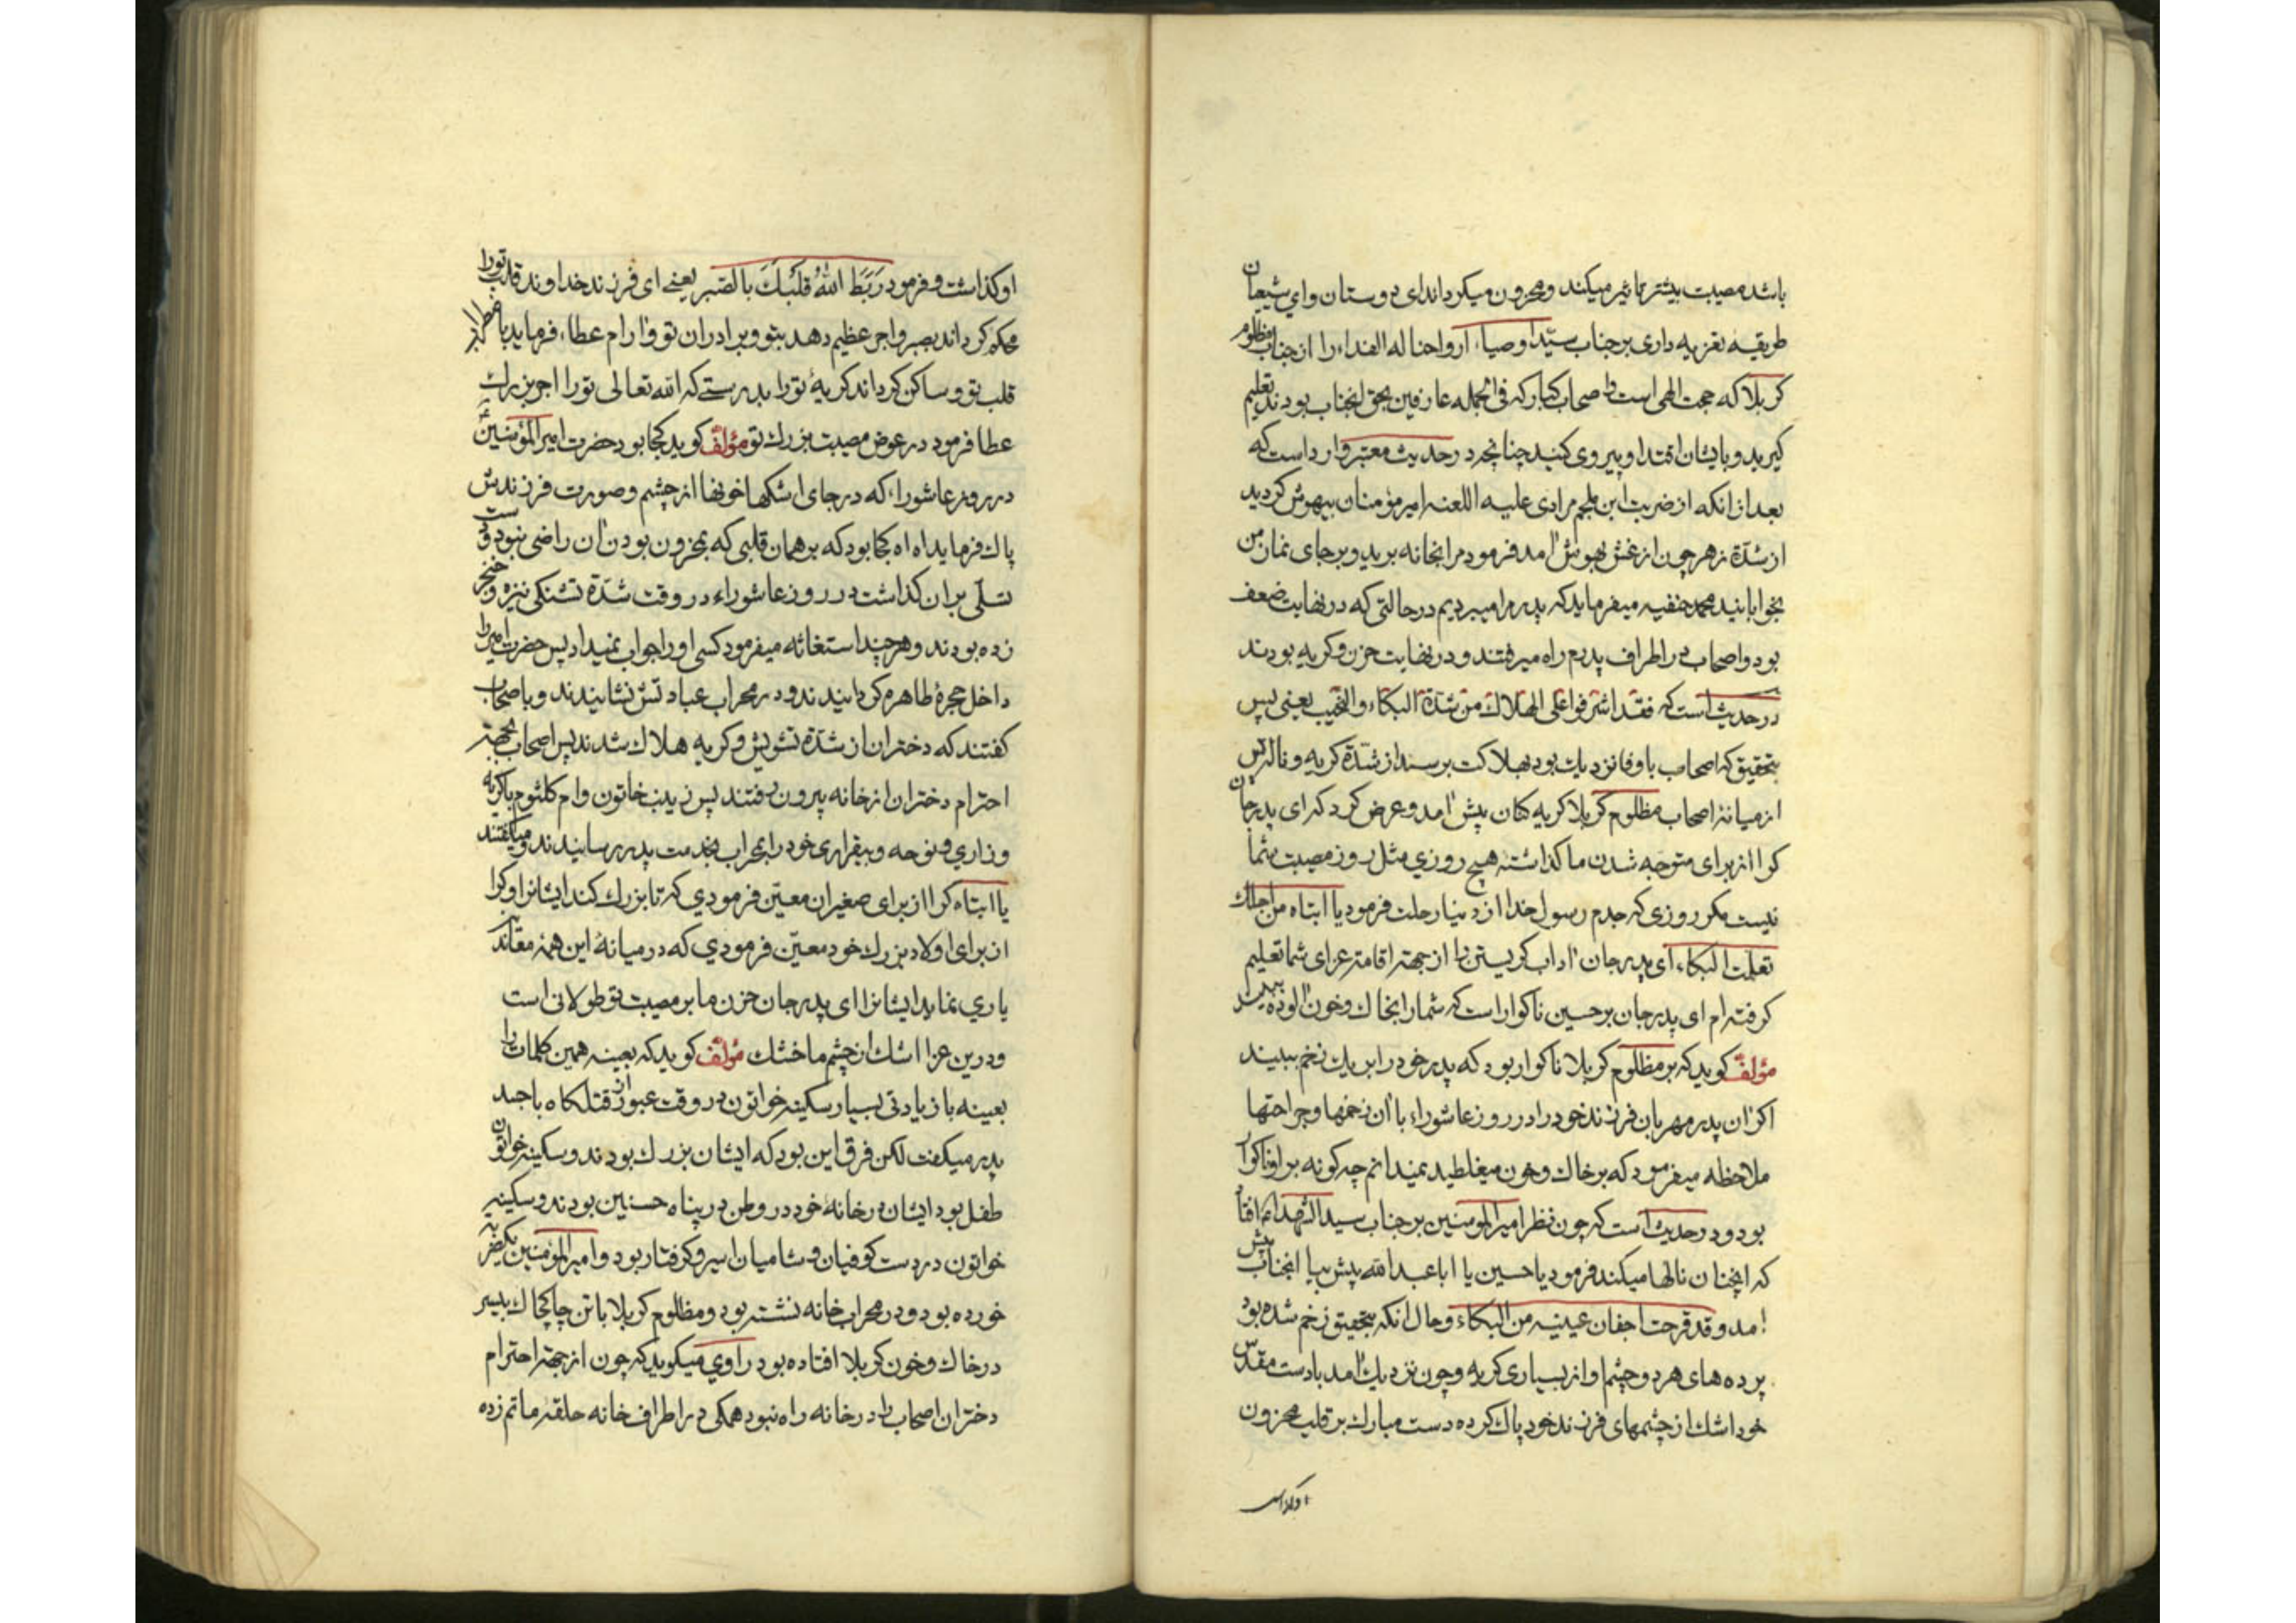 باشد مصیبت بیشتر تاثیر میکند و محزون میکرداند ای دوستان وای شیعیان
طریقیه تعزیه داری بر جناب سیّد اوصیاء ارواحنا له الفداء را از جناب مظلوم
کربلا که حجت الهی است و اصحاب کبار که فی الجمله عارفین بحق انجناب بودند تعلیم
کیرید و بایشان اقتدا و پیروی کنید چنانچه در حدیث معتبر وارد است که
بعد از انکه از ضربت ابن ملجم مرادی علیه اللعنه امیر مؤمنان بیهوش کردید
از شدّة زهر چون از غش بهوش آمد فرمود مرا بخانه برید و بر جای نماز من
بخوابانید محمد حنفیه میفرماید که پدرم را میبردیم در حالتی که در نهایت ضعف
بود و اصحاب در اطراف پدرم راه میرفتند و در نهایت حزن و کریه بودند
در حدیث است که فقد اشرفوا علی الهلاك من شدّة البکاء والنحیب یعنی پس
بتحقیق که اصحاب با وفا نزدیك بود بهلاکت برسند از شدّة کریه و ناله پس
از میانهٔ اصحاب مظلوم کربلا کریه کنان پیش آمد و عرض کرد که ای پدر جان
کرا از برای متوجه شدن ما کذاشته هیچ روزی مثل روز مصیبت شما
نیست مکر روزی که جدم رسول خدا از دنیا رحلت فرمود یا ابتاه من اجلك
تعلّمت البکاء ای پدر جان آداب کریستن را از جهته اقامته عزای شما تعلیم
کرفته ام ای پدر جان بر حسین ناکوار است که شما را بخاك و خون آلوده بیند
مؤلف کوید که بر مظلوم کربلا ناکوار بود که پدر خود را بر یك زخم ببیند
اکر آن پدر مهربان فرزند خود را در روز عاشوراء با آن زخمها و جراحتها
ملاحظه میفرمود که بر خاك و خون میغلطید نمیدانم چه کونه بر او ناکوار
بود و در حدیث است که چون نظر امیر المؤمنین بر جناب سید الشهداء افتاد
که انچنان نالها میکند فرمود یا حسین یا ابا عبد الله پیش بیا انجناب پیش
آمد و قد قرحت اجفان عینیه من البکاء و حال انکه بتحقیق زخم شده بود
پرده های هر دو چشم او از بسیاری کریه و چون نزدیك آمد با دست مقدّس
خود اشك از چشمهای فرزند خود پاك کرده دست مبارك بر قلب محزون
او کذاشت
او کذاشت و فرمود رَبَطَ اللهُ قلبَكَ بالصّبر یعنی ای فرزند خداوند قلب تو را
محکم کرداند بصبر و اجر عظیم دهد بتو و برادران تو و آرام عطاء فرماید باضطراب
قلب تو و ساکن کرداند کریهٔ تو را بدرستی که الله تعالی تو را اجر بزرك
عطا فرمود در عوض مصیبت بزرك تو مؤلف کوید کجا بود حضرت امیر المؤمنین
در روز عاشوراء که در جای اشکها خونها از چشم و صورت فرزندش
پاك فرماید اه اه کجا بود که بر همان قلبی که بمحزون بودن آن راضی نبود و دست
تسلّی بران کذاشت در روز عاشوراء در وقت شدّة تشنکی نیزه و خنجر
زده بودند و هر چند استغاثه میفرمود کسی او را جواب نمیداد پس حضرت امیر را
داخل حجرهٔ طاهره کردانیدند و در محراب عبادتش نشانیدند و باصحاب
کفتند که دختران از شدّة تشویش و کریه هلاك شدند پس اصحاب بجهته
احترام دختران از خانه بیرون رفتند پس زینب خاتون و ام کلثوم با کریه
و زاری و نوحه و بیقراری خود را بمحراب بخدمت پدر رسانیدند و میکفتند
یا ابتاه کرا از برای صغیران معیّن فرمودی که تا بزرك کند ایشانرا و کرا
از برای اولاد بزرك خود معیّن فرمودی که در میانهٔ این همه
یاری نماید ایشانرا ای پدر جان حزن ما بر مصیبت تو طولانی است
و در این عزا اشك از چشم ما خشك مؤلف کوید که بعینه همین کلمات را
بعینه با زیادتی بسیار سکینه خواتون در وقت عبور از قتلکاه با جسد
پدر میکفت لکن فرق این بود که ایشان بزرك بودند و سکینه خواتون
طفل بود ایشان در خانهٔ خود در وطن در پناه حسنین بودند و سکینه
خواتون در دست کوفیان و شامیان اسیر و کرفتار بود و امیر المؤمنین یکضربه
خورده بود و در محراب خانه نشسته بود و مظلوم کربلا با تن چاکچاك بیسر
در خاك و خون کربلا افتاده بود راوی میکوید که چون از جهته احترام
دختران اصحاب را در خانه راه نبود همکی در اطراف خانه حلقه ماتم زده